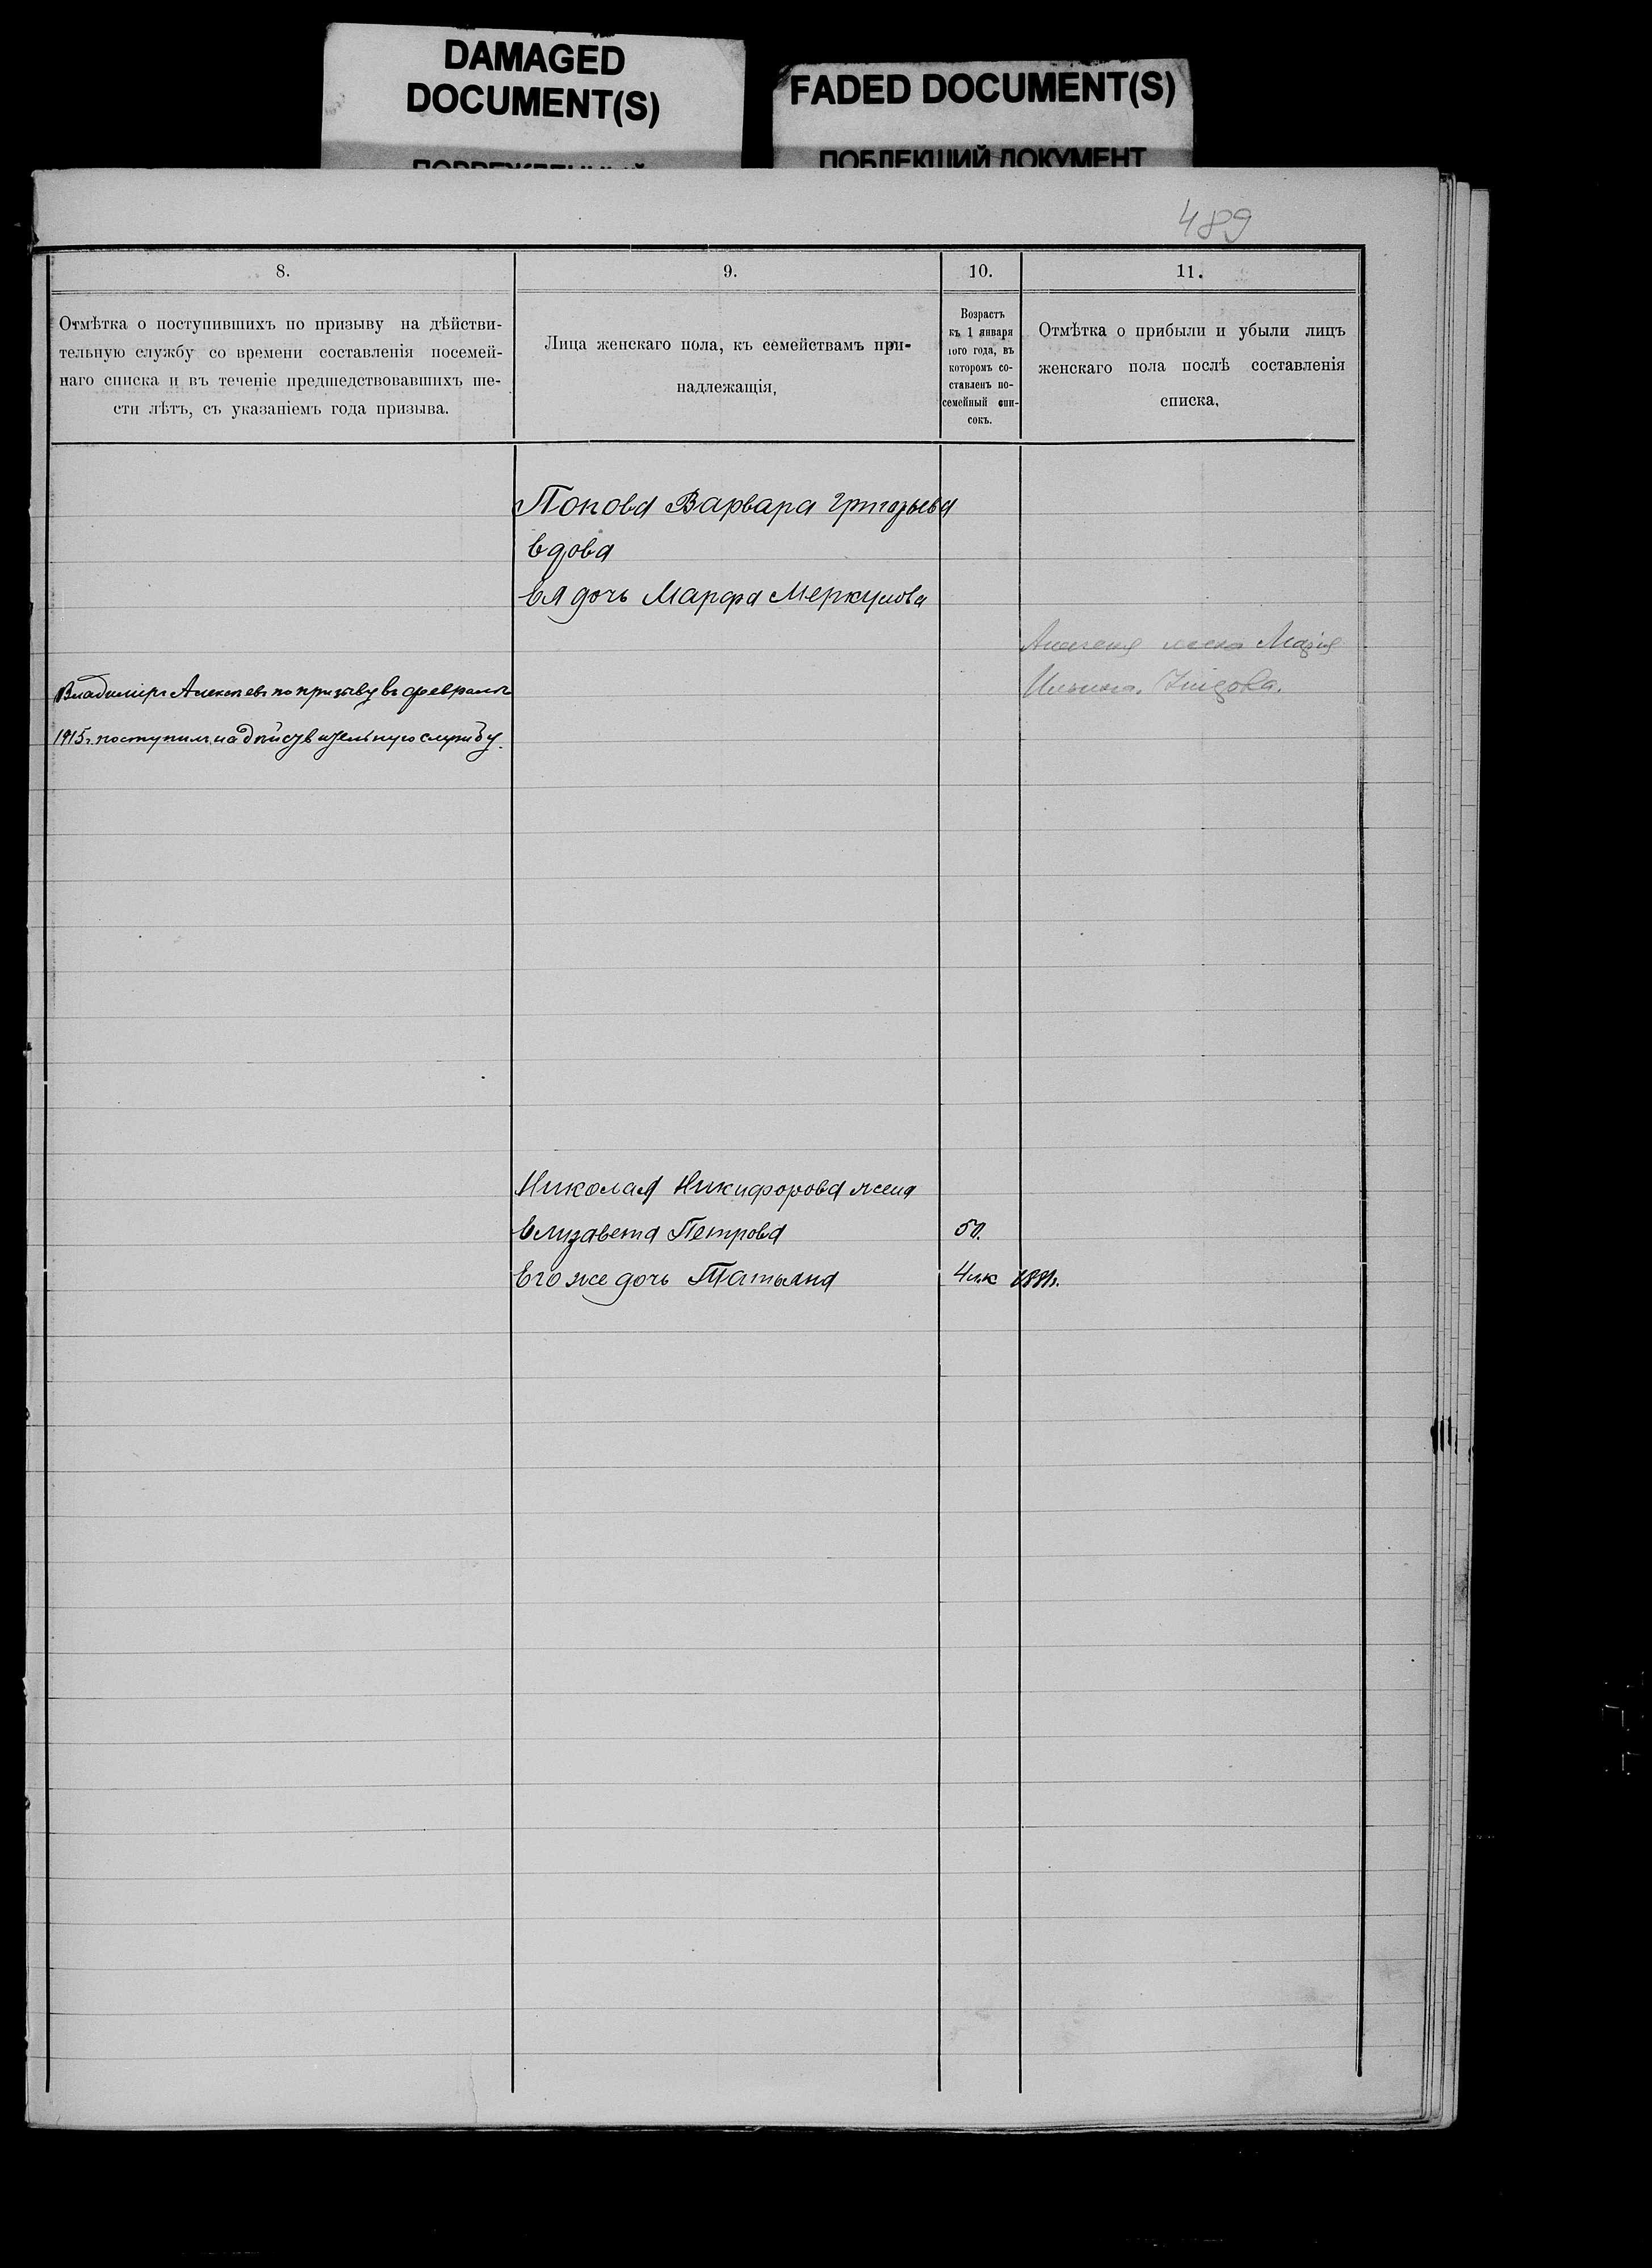 DAMAGED
DOCUMENT(S)
FADED DOCUMENT(S)
ПОБЛЕКШИЙ ДОКУМЕНТ
489
8.
9.
10.
11.
Отмѣтка о поступившихъ по призыву на дѣйстви-
тельную службу со времени составленія посемей-
наго списка и въ теченіе предшедствовавшихъ ше-
сти лѣтъ, съ указаніемъ года призыва.
Лица женскаго пола, къ семействамъ при-
надлежащія,
Возрастъ
къ 1 января
того года, въ
которомъ со-
ставленъ по-
семейный спи-
сокъ.
Отмѣтка о прибыли и убыли лицъ
женскаго пола послѣ составленія
списка,
Попова Варвара Григорьева
вдова
Ея дочь Марфа Меркулова
Алексея жена Марія
Ильина
Владиміръ Алексѣевъ по призыву въ февралѣ
1915г. поступилъ на дѣйствительную службу.
Николая Никифорова жена
Елизавета Петрова
50.
Его же дочь Татьяна
1881г.